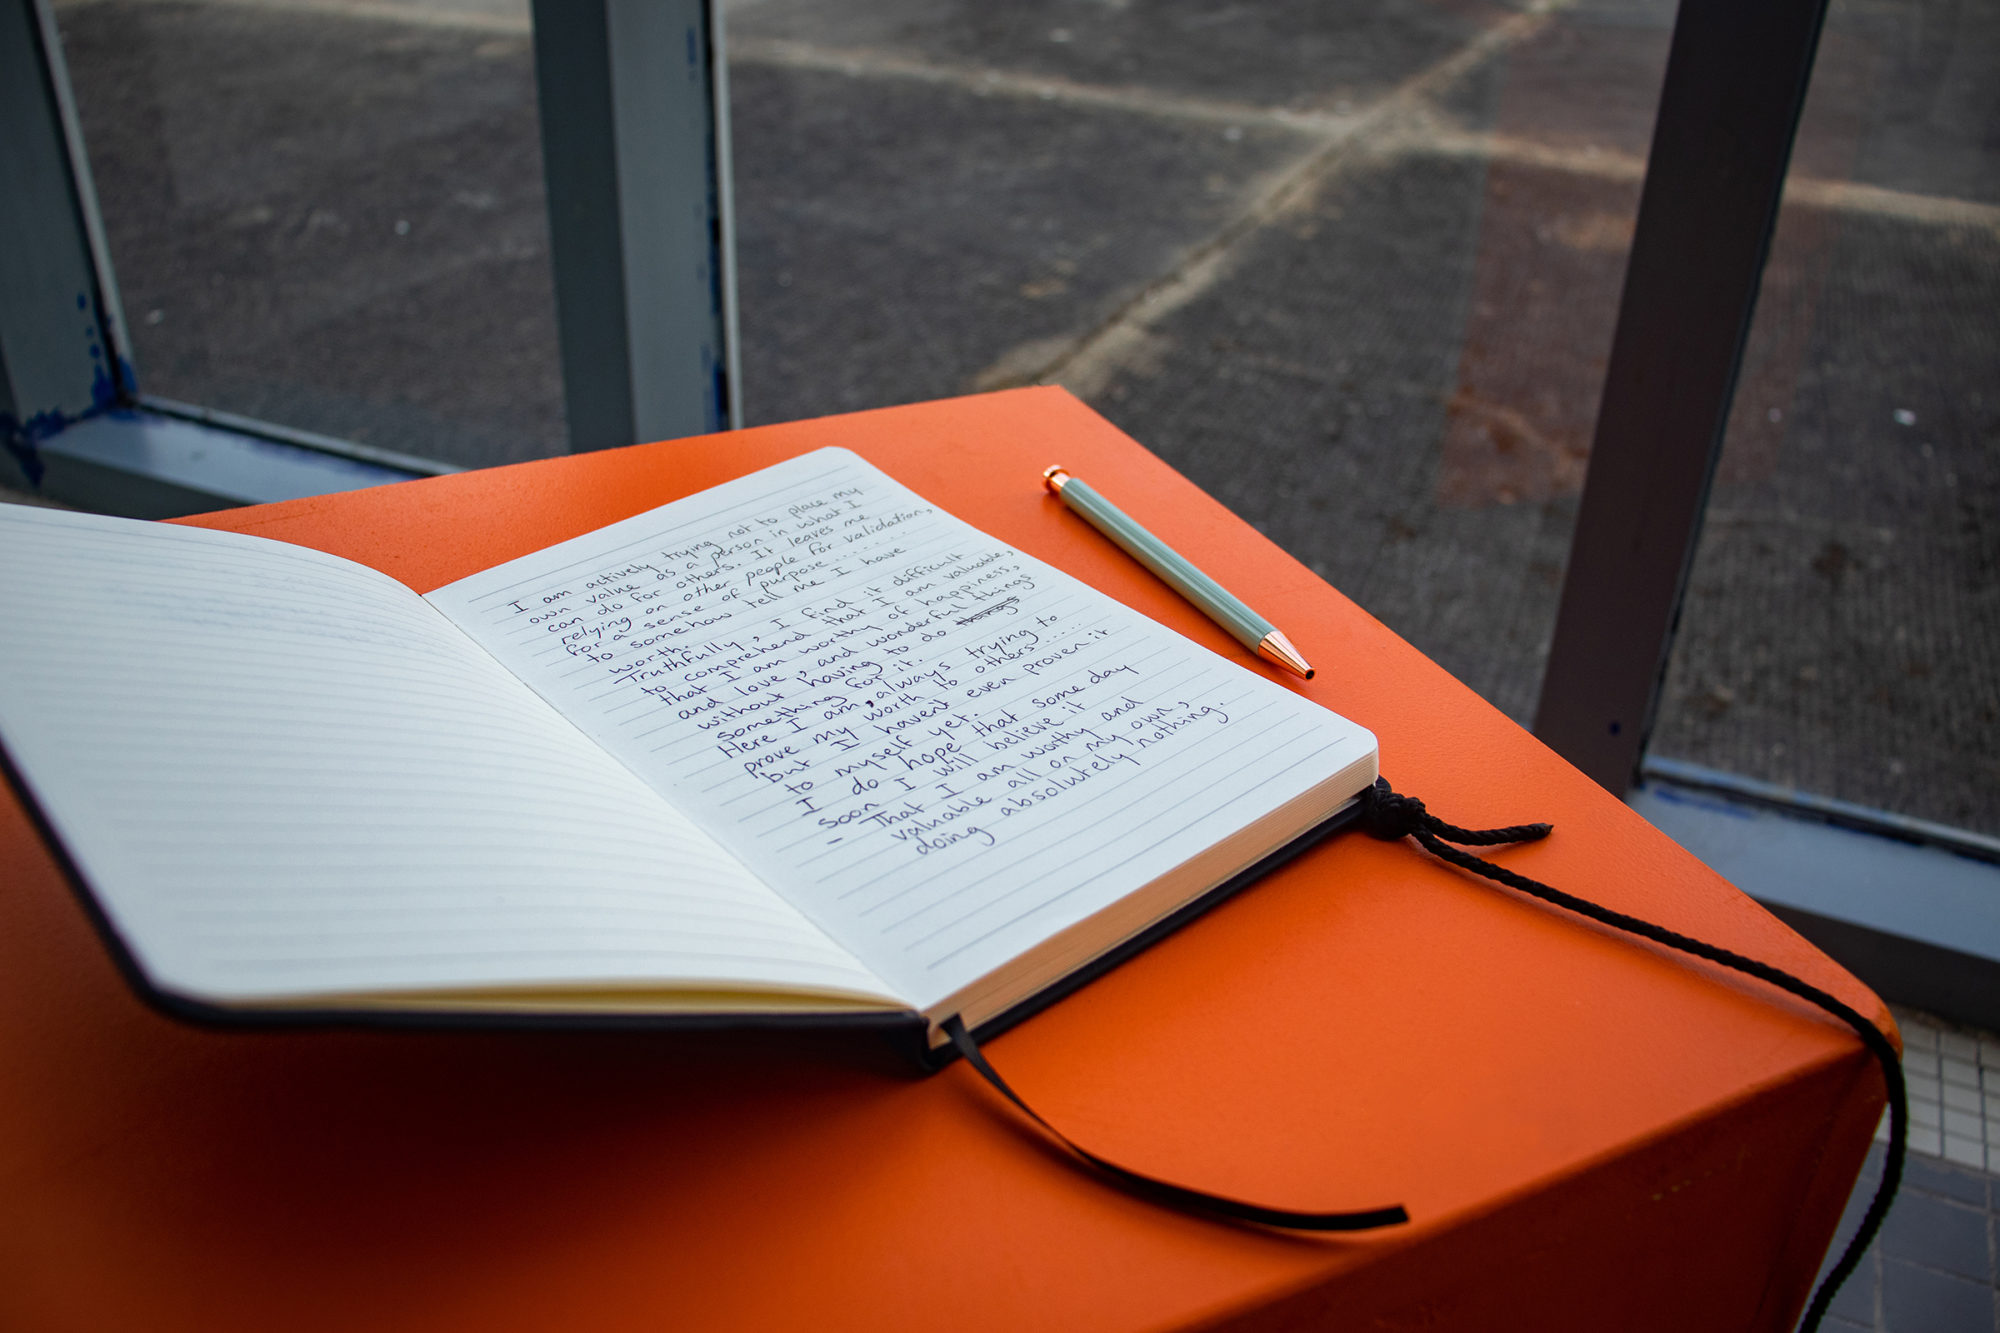 I am actively trying not to place my
own value as a person in what I
can do for others. It leaves me
relying on other people for validation,
for a sense of purpose........
to somehow tell me I have
worth.
Truthfully, I find it difficult
to comprehend that I am valuable,
that I am worthy of happiness,
and love, and wonderful things
without having to do things
something for it.
Here I am, always trying to
prove my worth to others.....
but I haven't even proven it
to myself yet.
I do hope that some day
soon I will believe it
- That I am worthy and
valuable all on my own,
doing absolutely nothing.